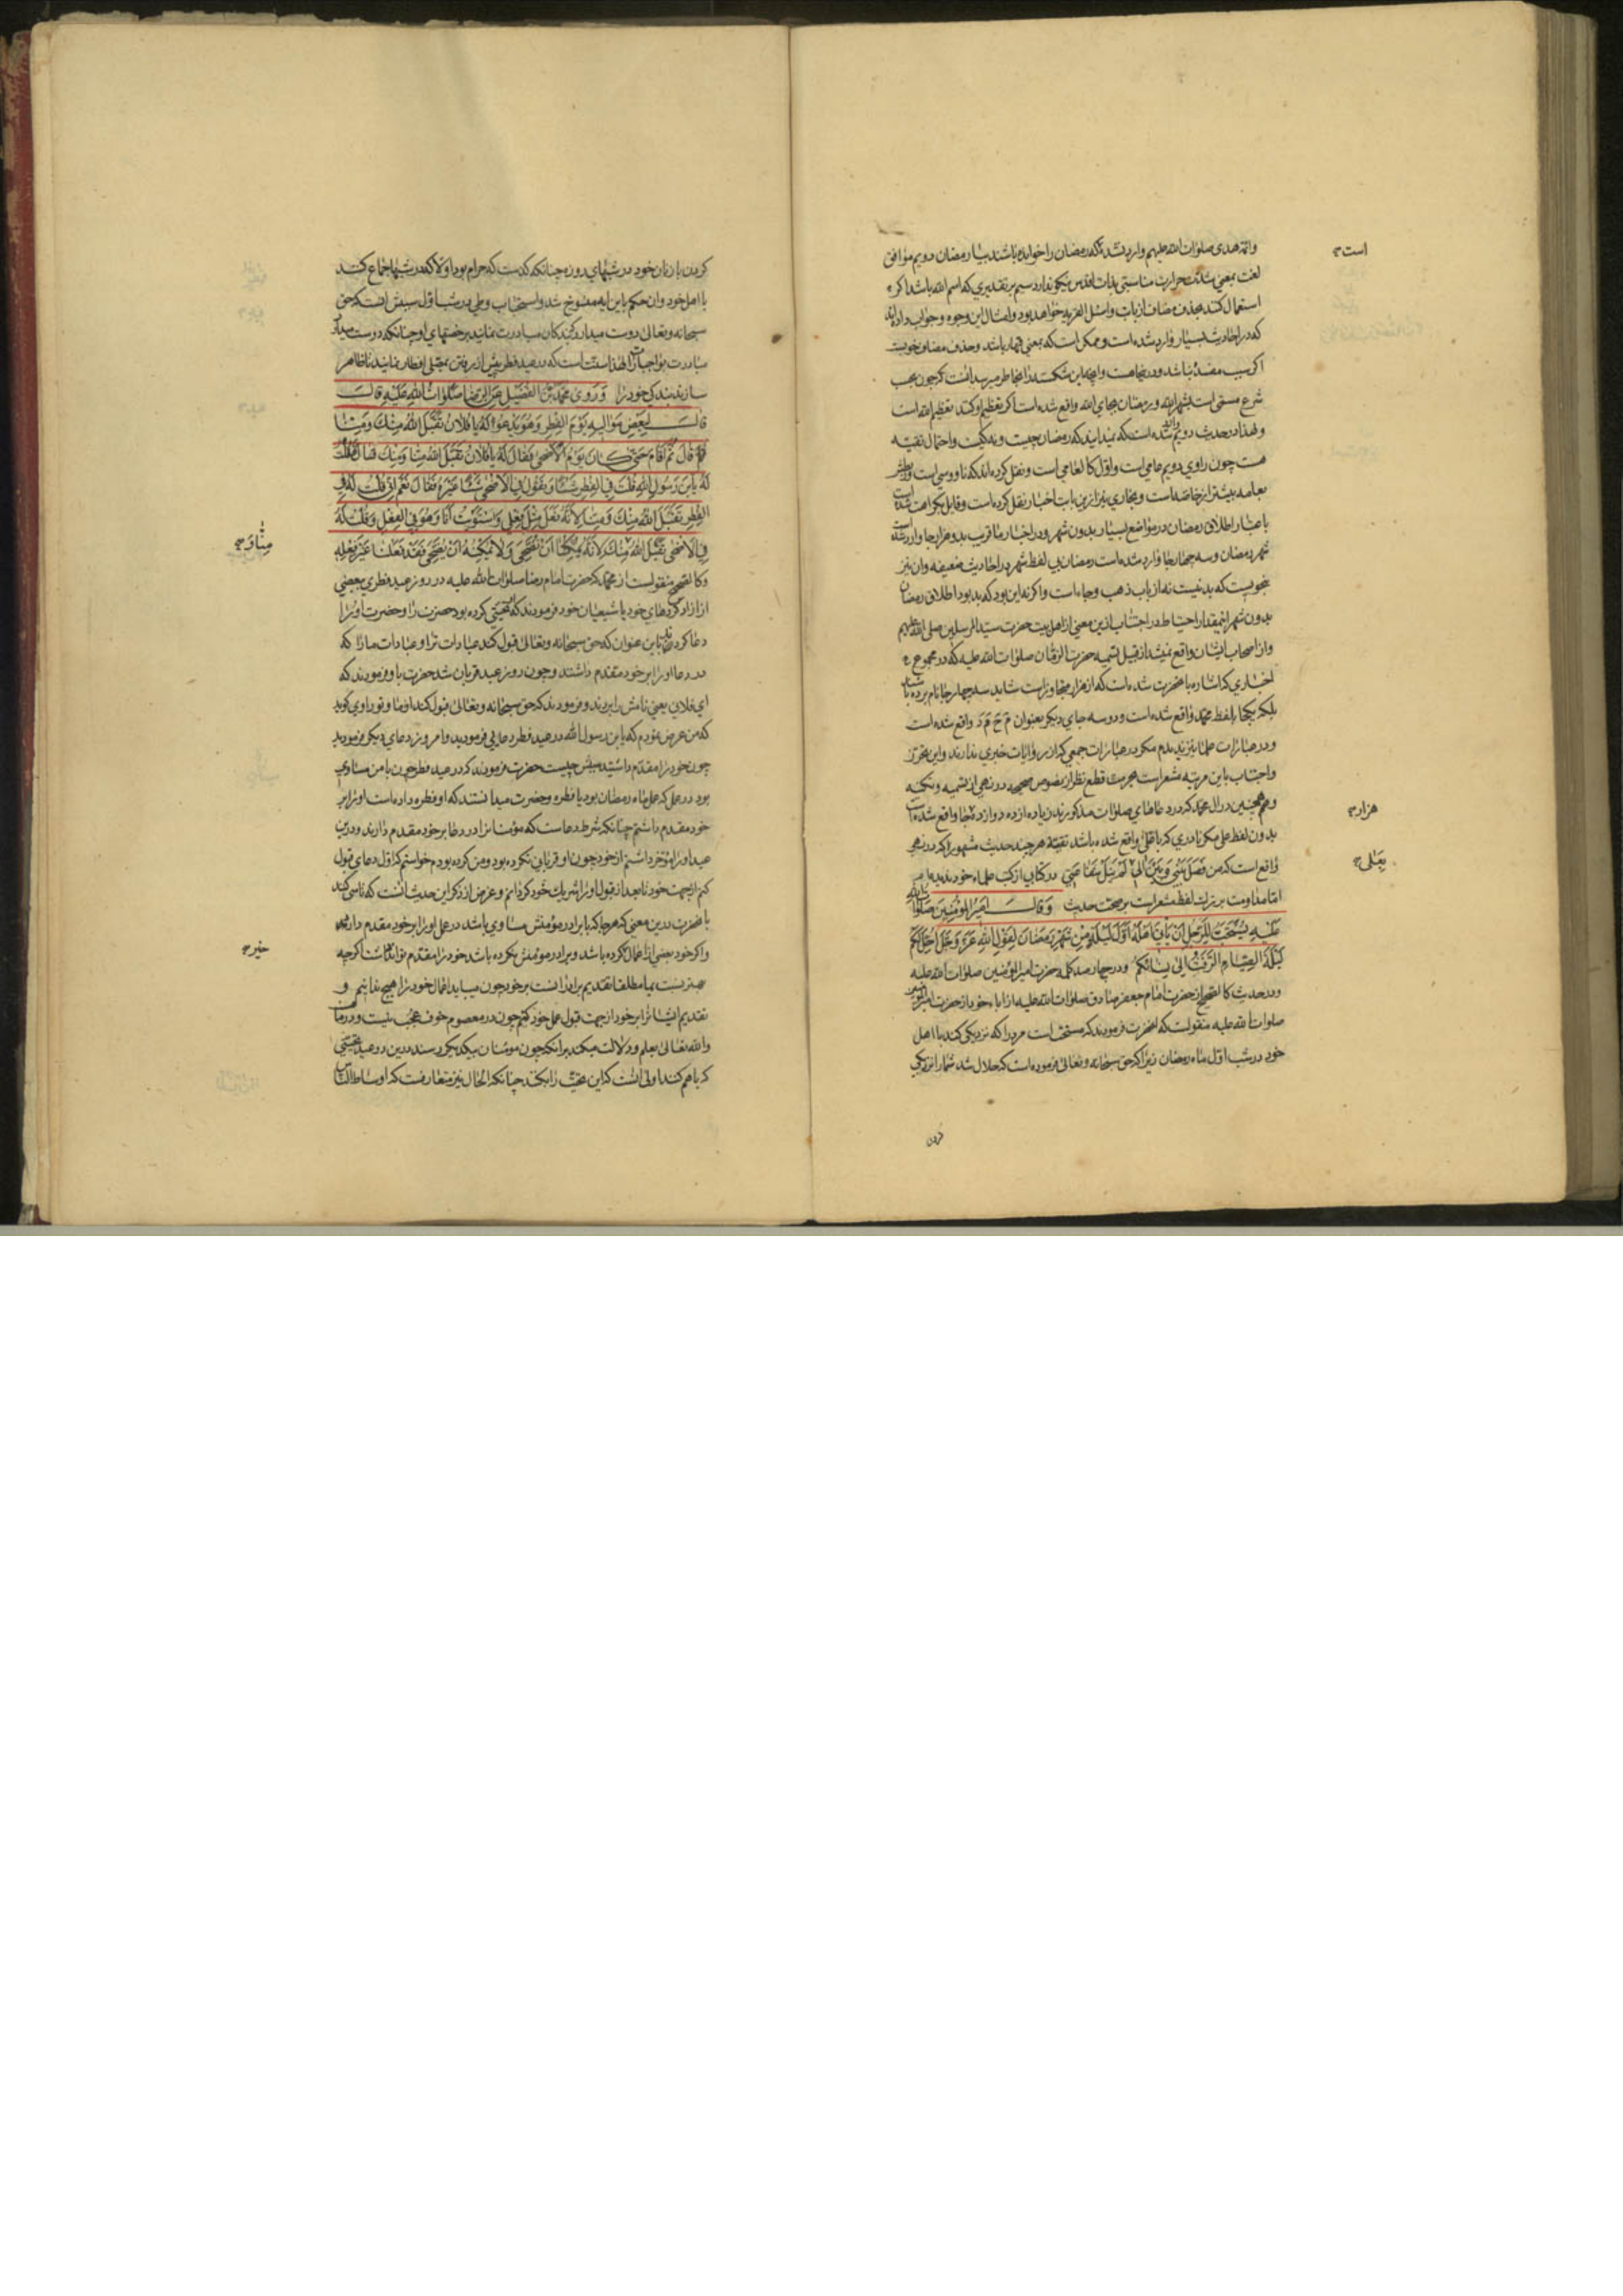 وائمه هدی صلوات الله علیهم وارد نشده که رمضان را خوانده باشند بیا رمضان دویم موافق
است
لغت بمعنی شدت حرارت مناسبتی بذات اقدس نیکو ندارد سیم بر تقدیری که اسم الله باشد اگر
استعمال کنند بحذف مضاف از باب واسئل القریه خواهد بود وامثال این وجوه وجواب داده اند
که در احادیث بسیار وارد شده است وممکن است که بمعنی باشد وحذف مضاف خوبست
شرع مسمی است بشهر الله ورمضان بجای الله واقع شده است اگر تعظیم او کنند تعظیم الله است
ولهذا در حدیث دویم وارد شده است که نمیدانید که رمضان چیست ونه کیست واحتمال تقیه
هست چون راوی دویم عامی است واول کالعامی است ونقل کرده اند که ناووسی است
بعامه بیشتر از خاصه است وبخاری نیز ازین بابت اخبار نقل کرده است وقایل بکراهت شده است
باعتبار اطلاق رمضان در مواضع بسیار بدون شهر ودر اخبار ما قریب بدو هزار جا وارد شده است
شهر رمضان وسه چهار جا وارد شده است رمضان بی لفظ شهر در احادیث ضعیفه وان نیز
بنحویست که بد نیست نه از باب ذهب وجاء است واگر نه این بود که بد بود اطلاق رمضان
بدون شهر اینمقدار احتیاط در اجتناب ازین معنی از اهل بیت حضرت سید المرسلین صلی الله علیهم
واز اصحاب ایشان واقع نمیشد از قبیل تسمیه حضرت صاحب الزمان صلوات الله علیه که در مجموع
اخباری که اشاره بانحضرت شده است که از هزار متجاوز است شاید سه چهار جا نام برده باشند
بلکه یکجا بلفظ محمد واقع شده است ودو سه جای دیگر بعنوان م ح م د واقع شده است
ودر عبارات علما نیز ندیدم مگر در عبارات جمعی که از روایات خبری ندارند واین تحرز
واجتناب باین مرتبه مشعر است بحرمت قطع نظر از نصوص صحیحه در نهی از تسمیه وتکنیه
وهمچنین در ال محمد که در دعاهای صلوات مذکورند زیاده از ده دوازده هزار جا واقع شده است
هزار
بدون لفظ علی مگر نادری که باعلی واقع شده باشد تقیة هر چند حدیث مشهور را که در نهی
واقع است که من فصل بینی وبین الی بعلی لم ینل شفاعتی در کتابی از کتب علماء خود ندیده ام
بعلی
اما مداومت بر ترک لفظ مشعر است بر صحت حدیث وَقالَ اَمیرُ المُؤمِنینَ صَلَواتُ اللهِ
عَلَیهِ یُستَحَبُّ لِلرَّجُلِ اَن یَأتِیَ اَهلَهُ اَوَّلَ لَیلَةٍ مِن شَهرِ رَمَضانَ لِقَولِ اللهِ عَزَّ وَجَلَّ اُحِلَّ لَکُم
لَیلَةَ الصِّیامِ الرَّفَثُ اِلی نِسائِکُم ودر چهار صد کلمه حضرت امیر المؤمنین صلوات الله علیه
ودر حدیث کالصحیح از حضرت امام جعفر صادق صلوات الله علیه از اباء خود از حضرت امیر المؤمنین
صلوات الله علیه منقولست که انحضرت فرمودند که مستحب است مرد را که نزدیکی کند با اهل
خود در شب اول ماه رمضان زیرا که حق سبحانه وتعالی فرموده است که حلال شد شما را نزدیکی
کردن
کردن با زنان خود در شبهای روزه چنانکه گذشت که حرام بود اولا که در شبها جماع کنند
با اهل خود وان حکم باین ایه منسوخ شد واستحباب وطی در شب اول سببش انست که حق
سبحانه وتعالی دوست میدارد که بندگان مبادرت نمایند برخصتهای او چنانکه دوست میدارد
مبادرت بواجبات را لهذا سنت است که در عید فطر پیش از رفتن بمصلی افطار نمایند تا ظاهر
سازند بندکی خود را وَرَوی مُحَمَّدُ بنُ الفُضَیلِ عَنِ الرِّضا صَلَواتُ اللهِ عَلَیهِ قالَ
قالَ لِبَعضِ مَوالیهِ یَومَ الفِطرِ وَهُوَ یَدعُو لَهُ یا فُلانُ تَقَبَّلَ اللهُ مِنکَ وَمِنّا
ثُمَّ قالَ ثُمَّ اَقامَ حَتّی کانَ یَومُ الاَضحی فَقالَ لَهُ یا فُلانُ تَقَبَّلَ اللهُ مِنّا وَمِنکَ قالَ فَقُلتُ
لَهُ یَابنَ رَسُولِ اللهِ قُلتَ فِی الفِطرِ شَیئًا وَتَقُولُ فِی الاَضحی شَیئًا غَیرَهُ فَقالَ نَعَم اِنّی قُلتُ لَهُ فِی
الفِطرِ تَقَبَّلَ اللهُ مِنکَ وَمِنّا لِاَنَّهُ فَعَلَ مِثلَ فِعلی وَاستَوَیتُ اَنَا وَهُوَ فِی الفِعلِ وَقُلتُ لَهُ
فِی الاَضحی تَقَبَّلَ اللهُ مِنکَ لِاَنَّهُ یُمکِنُنا اَن نُضَحِّیَ وَلا یُمکِنُهُ اَن یُضَحِّیَ فَقَد فَعَلنا غَیرَ فِعلِهِ
مِنّا وَ
وکالصحیح منقولست از محمد که حضرت امام رضا صلوات الله علیه در روز عید فطری ببعضی
از ازاد کردهای خود یا شیعیان خود فرمودند که تحیتی کرده بود حضرت را وحضرت او را
دعا کردند باین عنوان که حق سبحانه وتعالی قبول کند عبادات ترا وعبادات ما را که
در دعا او را بر خود مقدم داشتند وچون روز عید قربان شد حضرت باو فرمودند که
ای فلانی یعنی نامش را بردند وفرمودند که حق سبحانه وتعالی قبول کند از ما وتو راوی کوید
که من عرض نمودم که یابن رسول الله در عید فطر دعایی فرمودید وامروز دعای دیکر فرمودید
چون خود را مقدم داشتید سببش چیست حضرت فرمودند که در عید فطر چون با من مساوی
بود در عمل که عمل ماه رمضان بود یا فطره وحضرت میدانستند که او فطره داده است او را بر
خود مقدم داشتم چنانکه شرط دعاست که مؤمنانرا در دعا بر خود مقدم دارند ودرین
عید او را مؤخر داشتم از خود چون او قربانی نکرده بود ومن کرده بودم خواستم که اول دعای قبول
کنم از جهت خود تا بعد از قبول او را شریک خود کردانم وغرض از ذکر این حدیث انست که تاسی کنند
بانحضرت درین معنی که هر جا که با برادر مؤمنش مساوی باشد در عمل او را بر خود مقدم دارد
واکر خود بعضی از اعمال کرده باشد وبرادر مؤمنش نکرده باشد خود را مقدم تواند داشت اکرچه
خیر
بهتر نسبت بما مطلقا تقدیم برادرانست بر خود چون میباید اعمال خود را هیچ ندانیم و
تقدیم ایشانرا بر خود از جهت قبول عمل خود کنیم چون در معصوم خوف عجب نیست ودر ما هست
والله تعالی یعلم ودلالت میکند بر انکه چون مومنان بیکدیکر رسند درین دو عید تحیتی
که باهم کنند اولی انست که این تحیت را بکنند چنانکه الحال نیز متعارفست که اوساط الناس